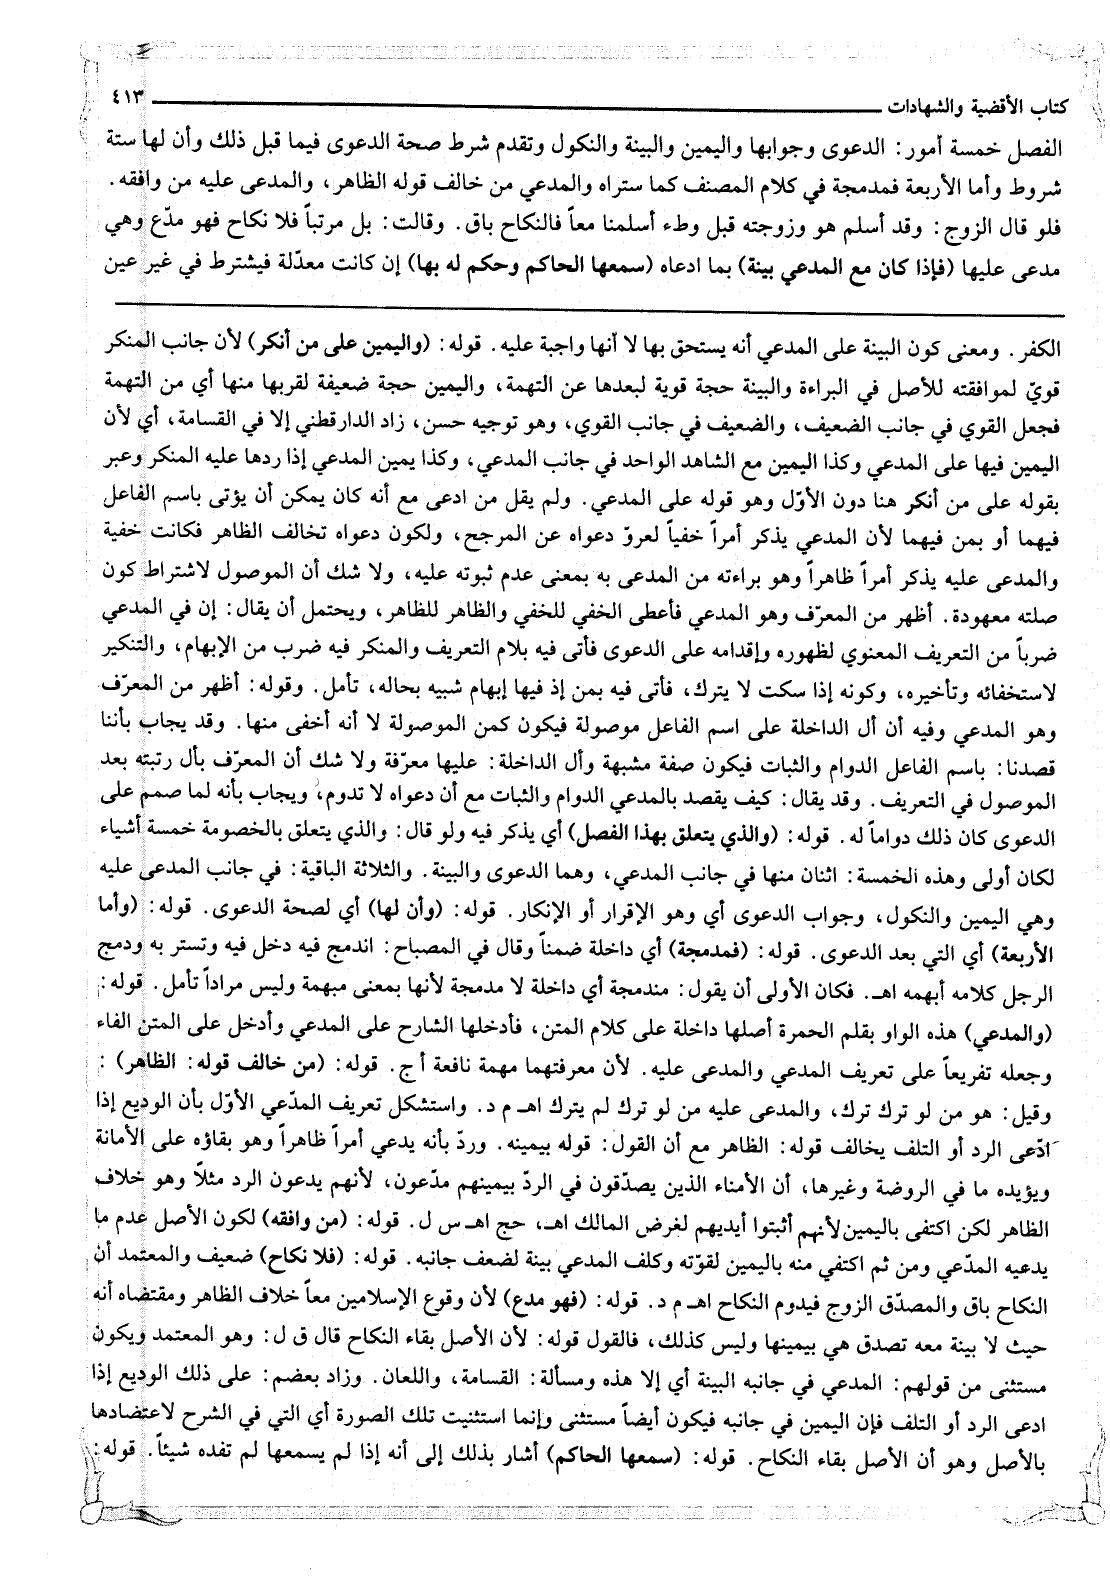 كتاب الأقضية والشهادات ٤١٣
الفصل خمسة أمور: الدعوى وجوابها واليمين والبينة والنكول وتقدم شرط صحة الدعوى فيما قبل ذلك وأن لها ستة
شروط وأما الأربعة فمدمجة في كلام المصنف كما ستراه والمدعي من خالف قوله الظاهر، والمدعى عليه من وافقه.
فلو قال الزوج: وقد أسلم هو وزوجته قبل وطء أسلمنا معاً فالنكاح باق. وقالت: بل مرتباً فلا نكاح فهو مدّع وهي
مدعى عليها (فإذا كان مع المدعي بينة) بما ادعاه (سمعها الحاكم وحكم له بها) إن كانت معدّلة فيشترط في غير عين
الكفر. ومعنى كون البينة على المدعي أنه يستحق بها لا أنها واجبة عليه. قوله: (واليمين على من أنكر) لأن جانب المنكر
قويّ لموافقته للأصل في البراءة والبينة حجة قوية لبعدها عن التهمة، واليمين حجة ضعيفة لقربها منها أي من التهمة
فجعل القوي في جانب الضعيف، والضعيف في جانب القوي، وهو توجيه حسن، زاد الدارقطني إلا في القسامة، أي لأن
اليمين فيها على المدعي وكذا اليمين مع الشاهد الواحد في جانب المدعي، وكذا يمين المدعي إذا ردها عليه المنكر وعبر
بقوله على من أنكر هنا دون الأوّل وهو قوله على المدعي. ولم يقل من ادعى مع أنه كان يمكن أن يؤتى باسم الفاعل
فيهما أو بمن فيهما لأن المدعي يذكر أمراً خفياً لعروّ دعواه عن المرجح، ولكون دعواه تخالف الظاهر فكانت خفية
والمدعى عليه يذكر أمراً ظاهراً وهو براءته من المدعى به بمعنى عدم ثبوته عليه، ولا شك أن الموصول لاشتراط كون
صلته معهودة. أظهر من المعرّف وهو المدعي فأعطى الخفي للخفي والظاهر للظاهر، ويحتمل أن يقال: إن في المدعي
ضرباً من التعريف المعنوي لظهوره وإقدامه على الدعوى فأتى فيه بلام التعريف والمنكر فيه ضرب من الإبهام، والتنكير
لاستخفائه وتأخيره، وكونه إذا سكت لا يترك، فأتى فيه بمن إذ فيها إبهام شبيه بحاله، تأمل. وقوله: أظهر من المعرّف
وهو المدعي وفيه أن أل الداخلة على اسم الفاعل موصولة فيكون كمن الموصولة لا أنه أخفى منها. وقد يجاب بأننا
قصدنا: باسم الفاعل الدوام والثبات فيكون صفة مشبهة وأل الداخلة: عليها معرّفة ولا شك أن المعرّف بأل رتبته بعد
الموصول في التعريف. وقد يقال: كيف يقصد بالمدعي الدوام والثبات مع أن دعواه لا تدوم، ويجاب بأنه لما صمم على
الدعوى كان ذلك دواماً له. قوله: (والذي يتعلق بهذا الفصل) أي يذكر فيه ولو قال: والذي يتعلق بالخصومة خمسة أشياء
لكان أولى وهذه الخمسة: اثنان منها في جانب المدعي، وهما الدعوى والبينة. والثلاثة الباقية: في جانب المدعى عليه
وهي اليمين والنكول، وجواب الدعوى أي وهو الإقرار أو الإنكار. قوله: (وأن لها) أي لصحة الدعوى. قوله: (وأما
الأربعة) أي التي بعد الدعوى. قوله: (فمدمجة) أي داخلة ضمناً وقال في المصباح: اندمج فيه دخل فيه وتستر به ودمج
الرجل كلامه أبهمه اهـ. فكان الأولى أن يقول: مندمجة أي داخلة لا مدمجة لأنها بمعنى مبهمة وليس مراداً تأمل. قوله:
(والمدعي) هذه الواو بقلم الحمرة أصلها داخلة على كلام المتن، فأدخلها الشارح على المدعي وأدخل على المتن الفاء
وجعله تفريعاً على تعريف المدعي والمدعى عليه. لأن معرفتهما مهمة نافعة أ ج. قوله: (من خالف قوله: الظاهر) :
وقيل: هو من لو ترك ترك، والمدعى عليه من لو ترك لم يترك اهـ م د. واستشكل تعريف المدّعي الأوّل بأن الوديع إذا
ادّعى الرد أو التلف يخالف قوله: الظاهر مع أن القول: قوله بيمينه. وردّ بأنه يدعي أمراً ظاهراً وهو بقاؤه على الأمانة
ويؤيده ما في الروضة وغيرها، أن الأمناء الذين يصدّقون في الردّ بيمينهم مدّعون، لأنهم يدعون الرد مثلاً وهو خلاف
الظاهر لكن اكتفى باليمين لأنهم أثبتوا أيديهم لغرض المالك اهـ، حج اهـ س ل. قوله: (من وافقه) لكون الأصل عدم ما
يدعيه المدّعي ومن ثم اكتفي منه باليمين لقوّته وكلف المدعي بينة لضعف جانبه. قوله: (فلا نكاح) ضعيف والمعتمد أن
النكاح باق والمصدّق الزوج فيدوم النكاح اهـ م د. قوله: (فهو مدع) لأن وقوع الإسلامين معاً خلاف الظاهر ومقتضاه أنه
حيث لا بينة معه تصدق هي بيمينها وليس كذلك، فالقول قوله: لأن الأصل بقاء النكاح قال ق ل: وهو المعتمد ويكون
مستثنى من قولهم: المدعي في جانبه البينة أي إلا هذه ومسألة: القسامة، واللعان. وزاد بعضم: على ذلك الوديع إذا
ادعى الرد أو التلف فإن اليمين في جانبه فيكون أيضاً مستثنى وإنما استثنيت تلك الصورة أي التي في الشرح لاعتضادها
بالأصل وهو أن الأصل بقاء النكاح. قوله: (سمعها الحاكم) أشار بذلك إلى أنه إذا لم يسمعها لم تفده شيئاً. قوله: